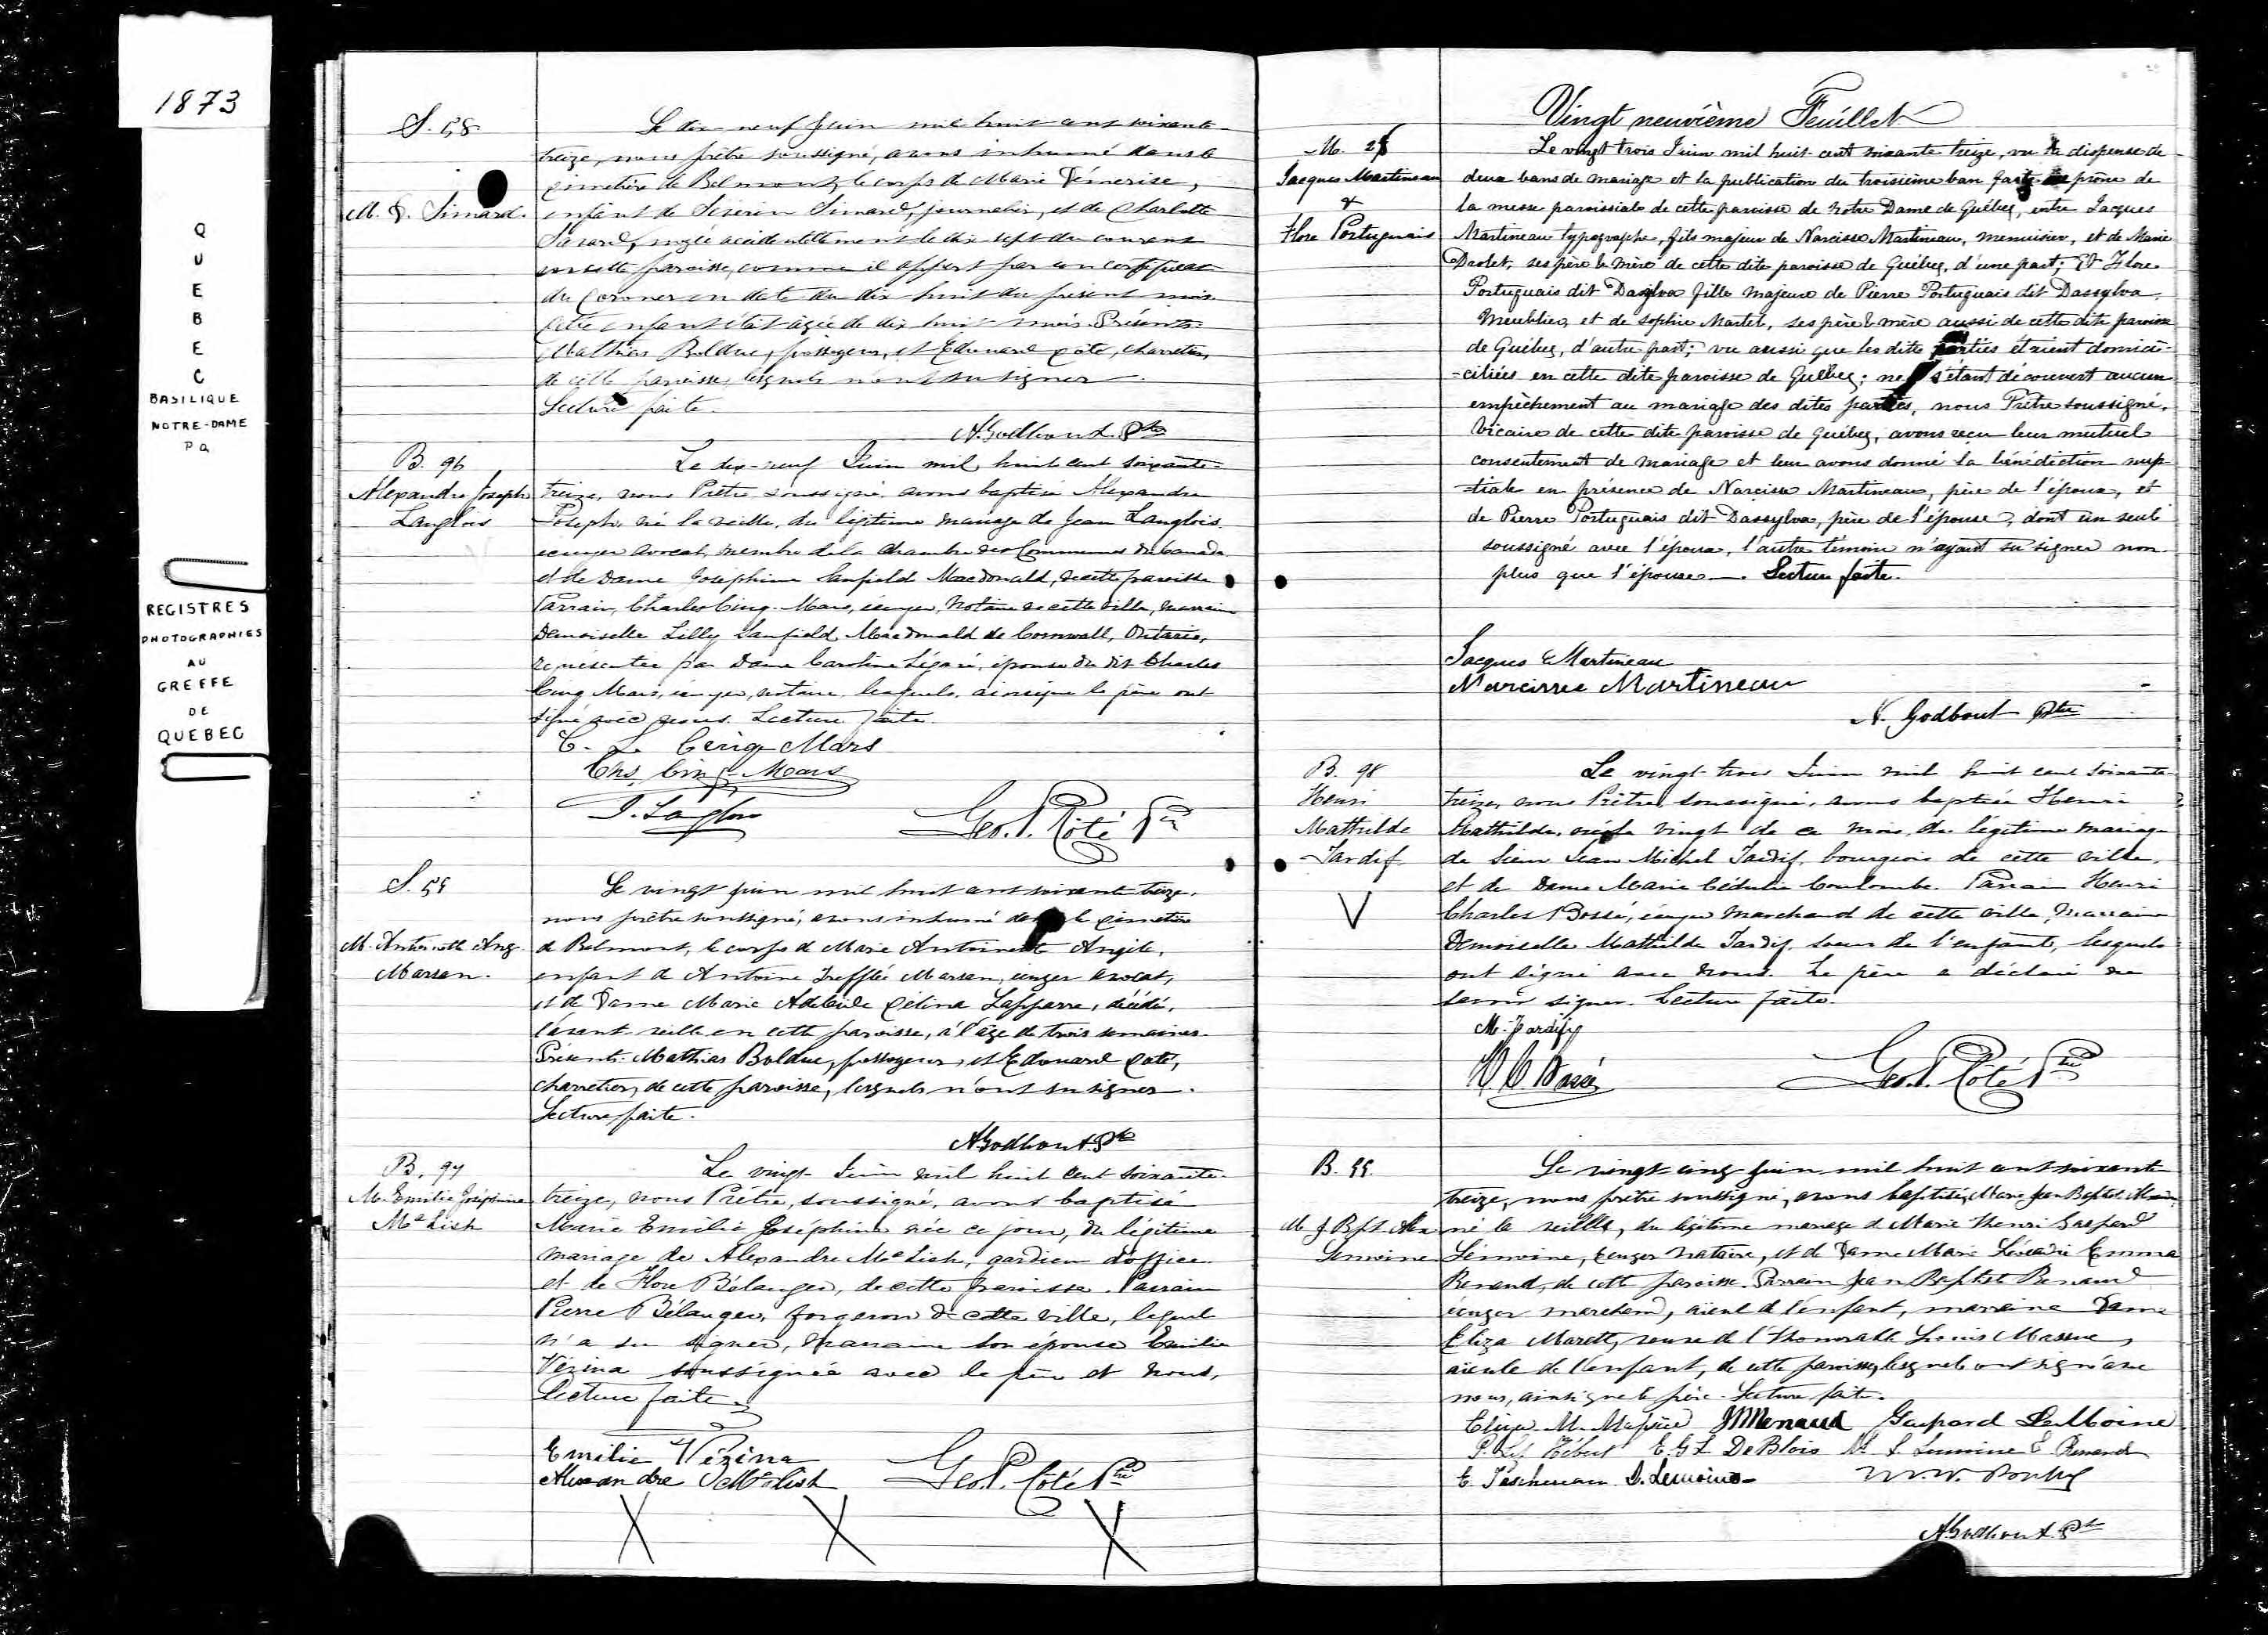 1873
QUEBEC
BASILIQUE
NOTRE-DAME
PQ
REGISTRES
PHOTOGRAPHIES
AU
GREFFE
DE
QUEBEC
S. 58
M. D. Simard.
Le dix neuf Juin mil huit cent soixante-
treize, nous prêtre soussigné, avons inhumé dans le
cimetière de Belmont, le corps de Marie Démerise,
enfant de Séverin Simard, journalier, et de Charlotte
Savard, noyée accidentellement le dix sept du courant
en cette paroisse, comme il appert par un certificat
du Coroner en date du dix huit du présent mois.
Cette enfant était âgée de dix huit mois. Présents:
Mathias Bolduc, fossoyeur, et Edouard Côté, charretier,
de cette paroisse, lesquels n'ont su signer.
Lecture faite.
N. Godbout Ptre
B. 96
Alexandre Joseph
Langlois
Le dix-neuf Juin mil huit cent soixante-
treize, nous Prêtre soussigné avons baptisé Alexandre
Joseph, né la veille, du légitime mariage de Jean Langlois,
écuyer avocat, membre de la Chambre des Communes du Canada
et de Dame Joséphine Sanfield Macdonald, de cette paroisse
Parrain, Charles Cinq-Mars, écuyer, Notaire de cette ville, marraine
Demoiselle Lilly Sanfield Macdonald de Cornwall, Ontario,
représentée par Dame Caroline Légaré, épouse du dit Charles
Cinq Mars, écuyer, notaire, lesquels, ainsi que le père ont
signé avec nous. Lecture faite.
C. L. Cinq Mars
Chs. Cinq-Mars
J. Langlois
Geo. P. Côté Ptre
S. 59
M. Antoinette Ang.
Marsan.
Le vingt juin mil huit cent soixante treize,
nous prêtre soussigné, avons inhumé dans le cimetière
de Belmont, le corps de Marie Antoinette Angèle,
enfant de Antoine Trefflée Marsan, écuyer avocat,
et de Dame Marie Adelaïde Célina décédé,
l'avant veille en cette paroisse, à l'âge de trois semaines.
Présents: Mathias Bolduc, fossoyeur, et Edouard Coté,
charretier, de cette paroisse, lesquels n'ont su signer.
Lecture faite.
N. Godbout Ptre
B. 97
M. Emilie Joséphine
Mc Lish
Le vingt Juin mil huit cent soixante-
treize, nous Prêtre, soussigné, avons baptisé
Marie Emilie Joséphine née ce jour, du légitime
mariage de Alexandre Mc Lish, gardien d'office
et de Flore Bélanger, de cette paroisse. Parrain
Pierre Bélanger, forgeron de cette ville, lequel
n'a su signer, Marraine son épouse Emilie
Vézina soussignée avec le père et nous,
Lecture faite.
Emilie Vézina
Alexandre McLish
Geo. P. Côté Ptre
Vingt neuvième Feuillet
M. 28
Jacques Martineau
&
Flore Portuguais
Le vingt trois Juin mil huit cent soixante treize, vu la dispense de
deux bans de mariage et la publication du troisième ban faite au prône de
la messe paroissiale de cette paroisse de Notre Dame de Québec, entre Jacques
Martineau typographe, fils majeur de Narcisse Martineau, menuisier, et de Marie
Drolet, ses père & mère de cette dite paroisse de Québec, d'une part; Et Flore
Portuguais dit Dasylva fille majeure de Pierre Portuguais dit Dassylva,
Meublier, et de Sophie Martel, ses père & mère aussi de cette dite paroisse
de Québec, d'autre part; vu aussi que les dites parties étaient domici-
=ciliées en cette dite paroisse de Québec; ne s'étant découvert aucun
empêchement au mariage des dites parties, nous Prêtre soussigné,
Vicaire de cette dite paroisse de Québec, avons reçu leur mutuel
consentement de mariage et leur avons donné la bénédiction nup
=tiale en présence de Narcisse Martineau, père de l'époux, et
de Pierre Portuguais dit Dassylva, père de l'épouse, dont un seul
soussigné avec l'époux, l'autre témoin n'ayant su signer non
plus que l'épouse. Lecture faite.
Jacques Martineau
Narcisse Martineau
N. Godbout Ptre
B. 98
Henri
Mathilde
Tardif
V
Le vingt-trois Juin mil huit cent soixante
treize, nous Prêtre, soussigné, avons baptisé Henri
Mathilde, née le vingt de ce mois, du légitime mariage
de Sieur Jean Michel Tardif, bourgeois de cette ville,
et de Dame Marie Cédulie Coulombe. Parrain Henri
Charles Bossé, écuyer marchand de cette ville, marraine
Demoiselle Mathilde Tardif, soeur de l'enfant, lesquels
ont signé avec nous. Le père a déclaré ne
savoir signer. Lecture faite.
M. Tardif
H C Bossé
Geo. P. Côté Ptre
B. 99.
M J Bpt
Lemoine
Le vingt cinq juin mil huit cent soixante
treize, nous prêtre soussigné, avons baptisé, Marie Jean Baptiste
né la veille, du légitime mariage de Marie Henri Gaspard
Lemoine, Ecuyer Notaire, et de Dame Marie Léocadie Emma
Renaud, de cette paroisse. Parrain Jean Baptiste Renaud
écuyer marchand, aïeul de l'enfant, marraine Dame
Eliza Marett, veuve de l'Honorable Louis Massue,
aïeule de l'enfant, de cette paroisse, lesquels ont signé avec
nous, ainsi que le père. Lecture faite.
Eliza M. Massue JBRenaud Gaspard LeMoine
E. G. L DeBlois
E. D. Lemoine
N. Godbout Ptre